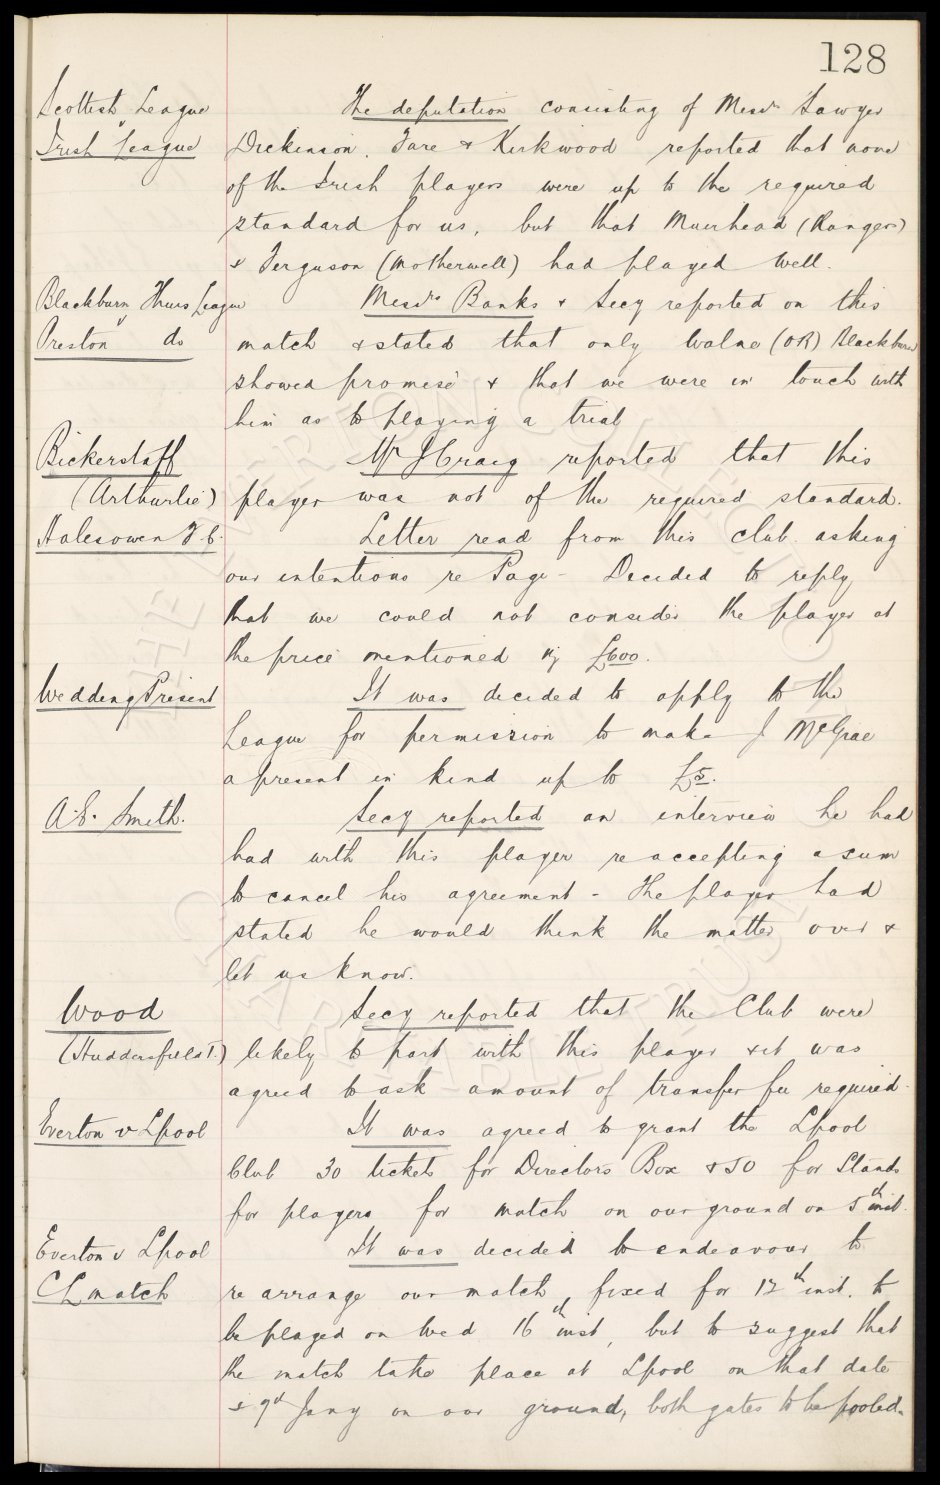 128
Scottish League
v
Irish League
The deputation consisting of Messrs Sawyer
Dickinson, Fare & Kirkwood reported that none
of the Irish players were up to the required
standard for us, but that Muirhead (Rangers)
& Ferguson (Motherwell) had played well.
Blackburn Thurs League
v
Preston do
Messrs Banks & Secy reported on this
match & stated that only Walne (OR) Blackburn
showed promise & that we were in touch with
him as to playing a trial
Bickerstaff
(Arthurlie)
Mr J Craig reported that this
player was not of the required standard.
Halesowen F.C.
Letter read from this club asking
our intentions re Page - Decided to reply
that we could not consider the player at
the price mentioned viz £600.
Wedding Present
It was decided to apply to the
League for permission to make J McGrae
a present in kind up to £5.
A.E. Smith.
Secy reported an interview he had
had with this player re accepting a sum
to cancel his agreement - The player had
stated he would think the matter over &
let us know.
Wood
(Huddersfield T.)
Secy reported that the Club were
likely to part with this player & it was
agreed to ask amount of transfer fee required.
Everton v Lpool
It was agreed to grant the Lpool
Club 30 tickets for Directors Box & 50 for Stands
for players for match on our ground on 5th inst.
Everton v Lpool
CL match
It was decided to endeavour to
re arrange our match, fixed for 12th inst. to
be played on Wed 16th inst, but to suggest that
the match take place at Lpool on that date
& 9th Jany on our ground, both gates to be pooled.
THE EVERTON COLLECTION
CHARITABLE TRUST